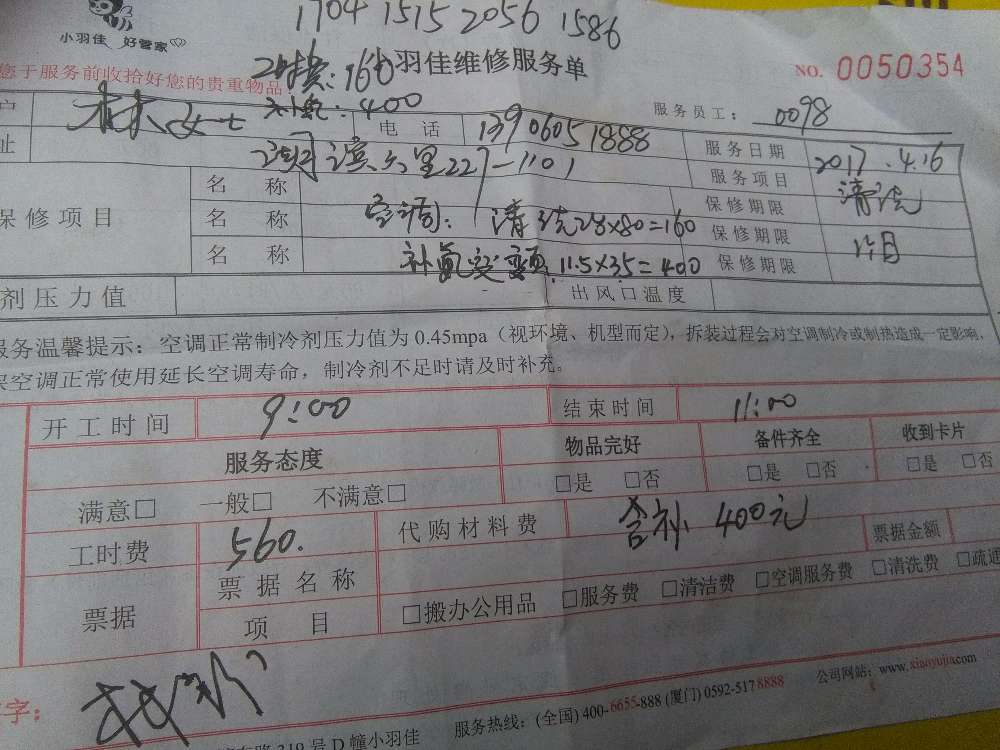 1704 1515 2056 1586
小羽佳 好管家
羽佳维修服务单
NO. 0050354
您于服务前收拾好您的贵重物品
160
400
服务员工: 0098
户 林女士 电话 13906051888 服务日期 2017.4.16
址 里22 -1101 服务项目 清洗
保修项目
名称 保修期限
名称 空调: 清洗2台×80=160 保修期限
名称 补氟变频 11.5×35=400 保修期限
剂压力值 出风口温度
服务温馨提示: 空调正常制冷剂压力值为 0.45mpa (视环境、机型而定), 拆装过程会对空调制冷或制热造成一定影响,
保空调正常使用延长空调寿命, 制冷剂不足时请及时补充。
开工时间 9:00 结束时间 11:00
服务态度 物品完好 备件齐全 收到卡片
满意□ 一般□ 不满意□ □是 □否 □是 □否 □是 □否
工时费 560. 代购材料费 含补 400元 票据金额
票据 票据名称 □搬办公用品 □服务费 □清洁费 □空调服务费 □清洗费 □疏通
项目
字:
319号D幢小羽佳 服务热线: (全国) 400-6655-888 (厦门) 0592-5178888 公司网站: www.xiaoyujia.com